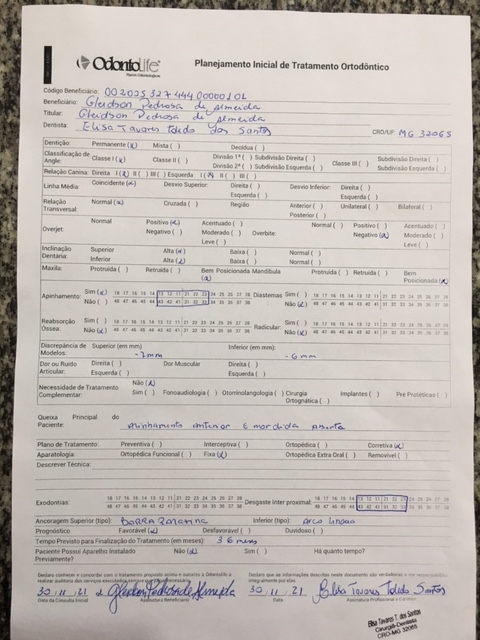 OdontoLife
Planos Odontológicos
Planejamento Inicial de Tratamento Ortodôntico
Código Beneficiário: 0020253274440000010L
Beneficiário: Gleidson Pedrosa de Almeida
Titular: Gleidson Pedrosa de Almeida
Dentista: Elisa Tavares Toledo dos Santos CRO/UF: MG 32065
Dentição: Permanente (x) Mista ( ) Decídua ( )
Classificação de Angle: Classe I (x) Classe II ( ) Divisão 1ª ( ) Subdivisão Direita ( ) Classe III ( ) Subdivisão Direita ( )
Divisão 2ª ( ) Subdivisão Esquerda ( ) Subdivisão Esquerda ( )
Relação Canina: Direita I (x) II ( ) III ( ) Esquerda I (x) II ( ) III ( )
Linha Média: Coincidente (x) Desvio Superior: Direita ( ) Desvio Inferior: Direita ( )
Esquerda ( ) Esquerda ( )
Relação Transversal: Normal (x) Cruzada ( ) Região Anterior ( ) Unilateral ( ) Bilateral ( )
Posterior ( )
Overjet: Normal Positivo (x) Acentuado ( ) Overbite: Normal ( ) Positivo ( ) Acentuado ( )
Negativo ( ) Moderado ( ) Negativo (x) Moderado ( )
Leve ( ) Leve ( )
Inclinação Dentária: Superior Alta (x) Baixa ( ) Normal ( )
Inferior Alta (x) Baixa ( ) Normal ( )
Maxila: Protruída ( ) Retruída ( ) Bem Posicionada (x) Mandíbula Protruída ( ) Retruída ( ) Bem Posicionada (x)
Apinhamento: Sim (x) 18 17 16 15 14 13 12 11 21 22 23 24 25 26 27 28 Diastemas Sim ( ) 18 17 16 15 14 13 12 11 21 22 23 24 25 26 27 28
Não ( ) 48 47 46 45 44 43 42 41 31 32 33 34 35 36 37 38 Não (x) 48 47 46 45 44 43 42 41 31 32 33 34 35 36 37 38
Reabsorção Óssea: Sim ( ) 18 17 16 15 14 13 12 11 21 22 23 24 25 26 27 28 Radicular: Sim ( ) 18 17 16 15 14 13 12 11 21 22 23 24 25 26 27 28
Não (x) 48 47 46 45 44 43 42 41 31 32 33 34 35 36 37 38 Não (x) 48 47 46 45 44 43 42 41 31 32 33 34 35 36 37 38
Discrepância de Modelos: Superior (em mm) -7mm Inferior (em mm): -6mm
Dor ou Ruído Articular: Direita ( ) Dor Muscular Direita ( )
Esquerda ( ) Esquerda ( )
Necessidade de Tratamento Complementar: Não (x)
Sim ( ) Fonoaudiologia ( ) Otorrinolangologia ( ) Cirurgia Ortognática ( ) Implantes ( ) Pré Protéticas ( )
Queixa Principal do Paciente: Alinhamento Anterior e mordida Aberta
Plano de Tratamento: Preventiva ( ) Interceptiva ( ) Ortopédica ( ) Corretiva (x)
Aparatologia: Ortopédica Funcional ( ) Fixa (x) Ortopédica Extra Oral ( ) Removível ( )
Descrever Técnica:
Exodontias: 18 17 16 15 14 13 12 11 21 22 23 24 25 26 27 28 Desgaste Inter proximal: 18 17 16 15 14 13 12 11 21 22 23 24 25 26 27 28
48 47 46 45 44 43 42 41 31 32 33 34 35 36 37 38 48 47 46 45 44 43 42 41 31 32 33 34 35 36 37 38
Ancoragem Superior (tipo): Barra Palatina Inferior (tipo): Arco Lingual
Prognóstico Favorável (x) Desfavorável ( ) Duvidoso ( )
Tempo Previsto para Finalização do Tratamento (em meses): 36 meses
Paciente Possui Aparelho Instalado Previamente? Não (x) Sim ( ) Há quanto tempo?
Declaro conhecer e concordar com o tratamento proposto acima e autorizo a Odontolife a realizar auditoria dos serviços executados
Declaro que as informações descritas neste documento são verdadeiras e me responsabilizo integralmente por elas.
30.11.21 Gleidson Pedrosa de Almeida 30.11.21 Elisa Tavares Toledo Santos
Data da Consulta Inicial Assinatura Beneficiário Data Assinatura Profissional e Carimbo
Elisa Tavares T. dos Santos
Cirurgiã-Dentista
CRO-MG 32065